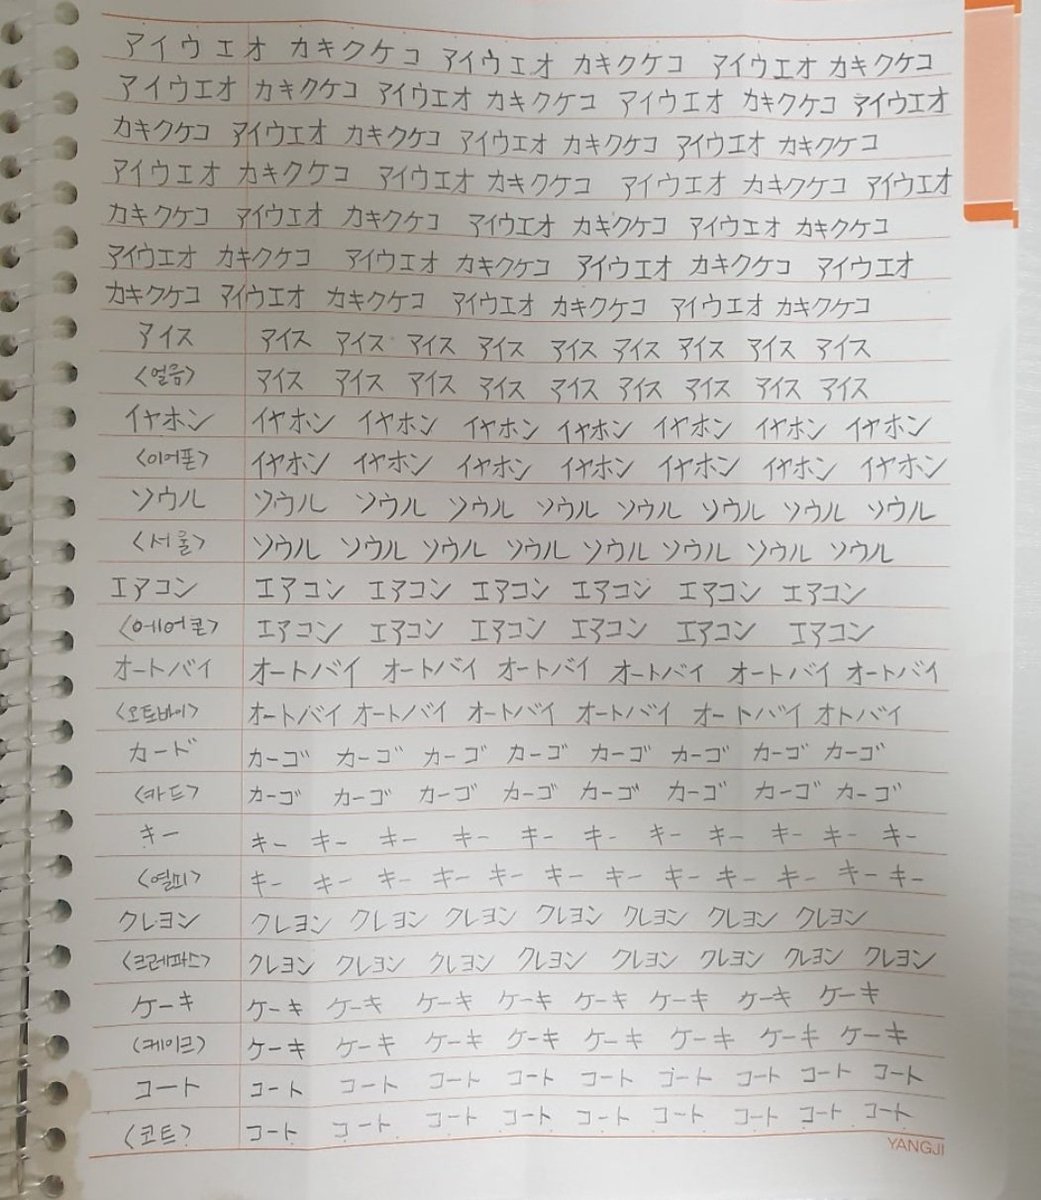 アイウエオ カキクケコ アイウエオ カキクケコ アイウエオ カキクケコ
アイウエオ カキクケコ アイウエオ カキクケコ アイウエオ カキクケコ アイウエオ
カキクケコ アイウエオ カキクケコ アイウエオ カキクケコ アイウエオ カキクケコ
アイウエオ カキクケコ アイウエオ カキクケコ アイウエオ カキクケコ アイウエオ
カキクケコ アイウエオ カキクケコ アイウエオ カキクケコ アイウエオ カキクケコ
アイウエオ カキクケコ アイウエオ カキクケコ アイウエオ カキクケコ アイウエオ
カキクケコ アイウエオ カキクケコ アイウエオ カキクケコ アイウエオ カキクケコ
アイス アイス アイス アイス アイス アイス アイス アイス アイス アイス
<얼음> アイス アイス アイス アイス アイス アイス アイス アイス アイス
イヤホン イヤホン イヤホン イヤホン イヤホン イヤホン イヤホン イヤホン
<이어폰> イヤホン イヤホン イヤホン イヤホン イヤホン イヤホン イヤホン
ソウル ソウル ソウル ソウル ソウル ソウル ソウル ソウル ソウル
<서울> ソウル ソウル ソウル ソウル ソウル ソウル ソウル ソウル
エアコン エアコン エアコン エアコン エアコン エアコン エアコン
<에어콘> エアコン エアコン エアコン エアコン エアコン エアコン
オートバイ オートバイ オートバイ オートバイ オートバイ オートバイ オートバイ
<오토바이> オートバイ オートバイ オートバイ オートバイ オートバイ オトバイ
カード カーゴ カーゴ カーゴ カーゴ カーゴ カーゴ カーゴ カーゴ
<카드> カーゴ カーゴ カーゴ カーゴ カーゴ カーゴ カーゴ カーゴ
キー キー キー キー キー キー キー キー キー キー キー キー
<열띠> キー キー キー キー キー キー キー キー キー キー キー キー
クレヨン クレヨン クレヨン クレヨン クレヨン クレヨン クレヨン クレヨン
<크레파스> クレヨン クレヨン クレヨン クレヨン クレヨン クレヨン クレヨン クレヨン
ケーキ ケーキ ケーキ ケーキ ケーキ ケーキ ケーキ ケーキ ケーキ
<케이크> ケーキ ケーキ ケーキ ケーキ ケーキ ケーキ ケーキ ケーキ
コート コート コート コート コート コート コート コート コート コート
<코트> コート コート コート コート コート コート コート コート コート
YANGJI